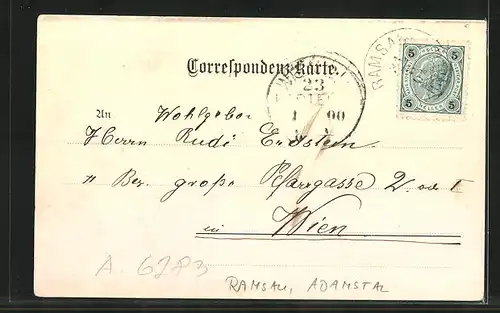 Correspondenz-Karte.
RAMSAU
5 5
23
1 00
5 HELLER 5
An Wohlgebor
Herrn Rudi Erdstein
II Bez. große Pfarrgasse 2
in Wien
A. 6283
RAMSAU, ADAMSTAL